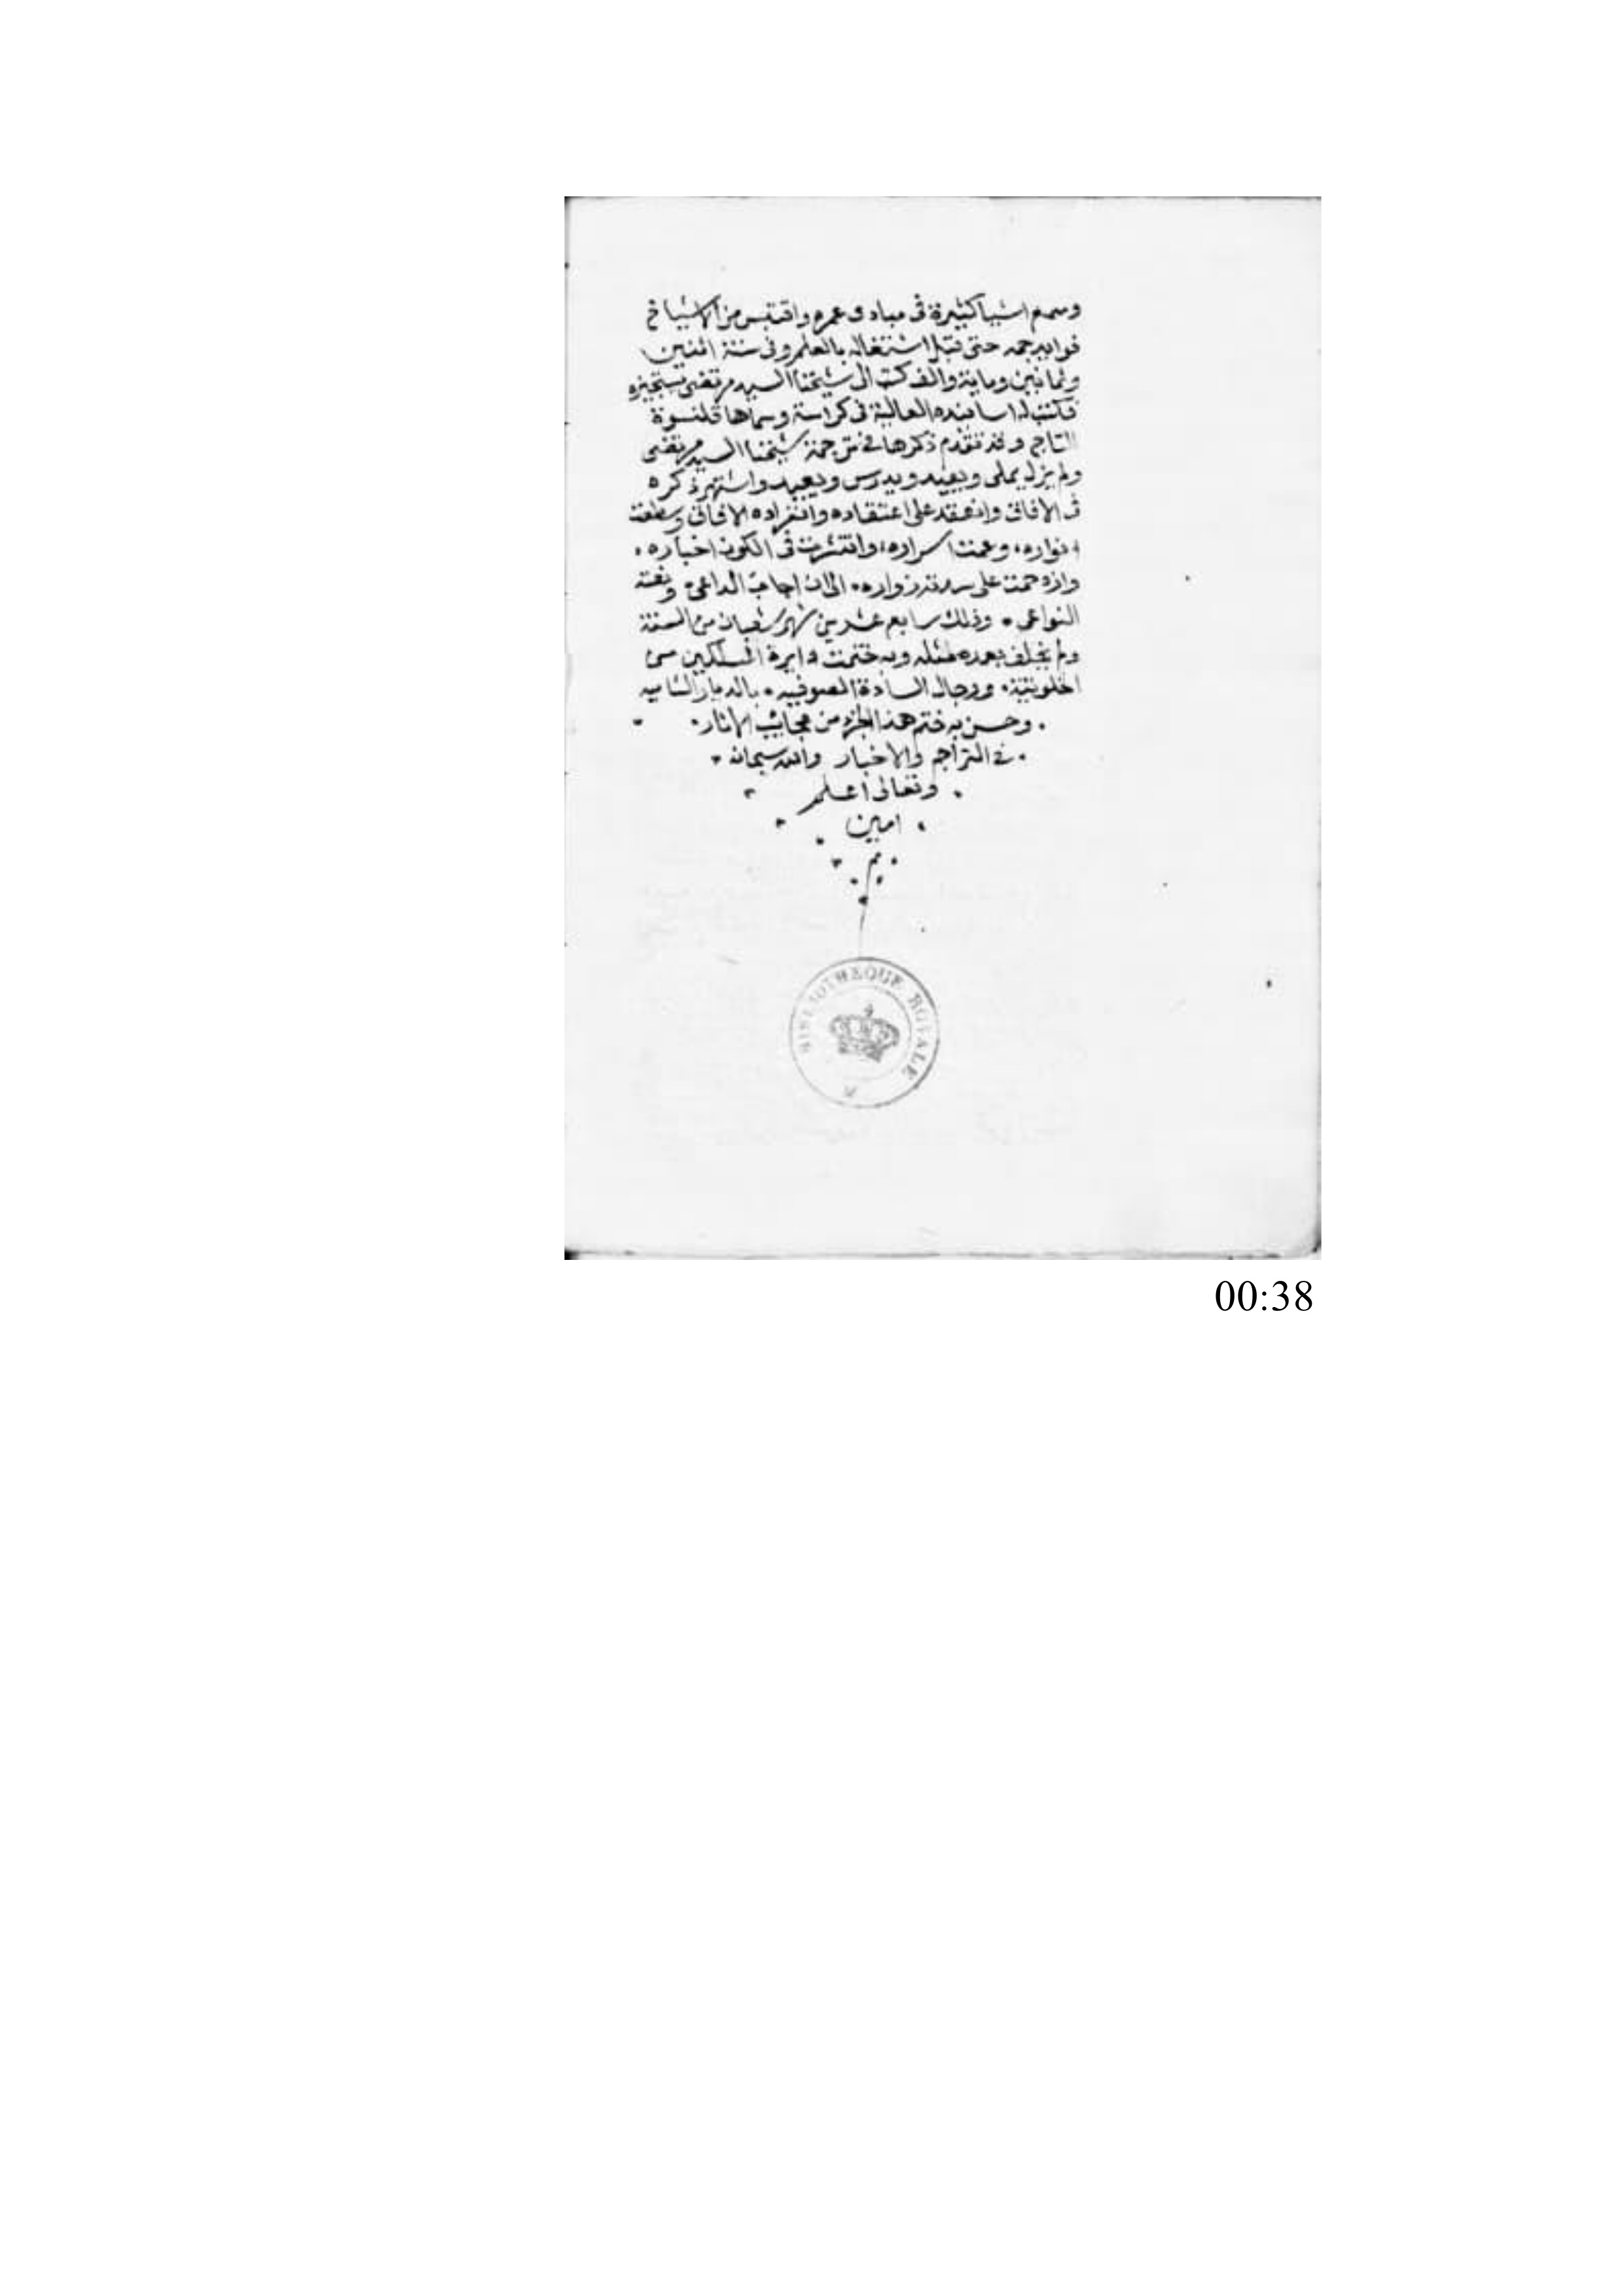 وسمع اشيا كثيرة فى مبادى عمره واقتبس من الاشياخ
فوايد جمه حتى قبل اشتغاله بالعلم وفى سنة اثنين
وثمانين وماية والف كتب الى شيخنا السيد مرتضى يستجيزه
فكتب له اسانيده العالية فى كراسة وسماها قلنسوة
التاج وقد تقدم ذكرها فى ترجمة شيخنا السيد مرتضى
ولم يزل يملى ويفيد ويدرس ويعيد واشتهر ذكره
فى الافاق وانعقد على اعتقاده وانفراده الاتفاق وسطعت
انواره وعمت اسراره وانتشرت فى الكون اخباره
وازدحمت على سدته زواره الى ان اجاب الداعى ونعته
النواعى وذلك سابع عشرين شهر شعبان من السنة
ولم يخلف بعده مثله وبه ختمت دايرة المسلكين من
الخلوتية ورجال السادة الصوفيه بالديار الشاميه
وحسن به ختم هذا الجزء من عجائب الاثار
فى التراجم والاخبار والله سبحانه
وتعالى اعلم
امين
BIBLIOTHEQUE ROYALE
00:38